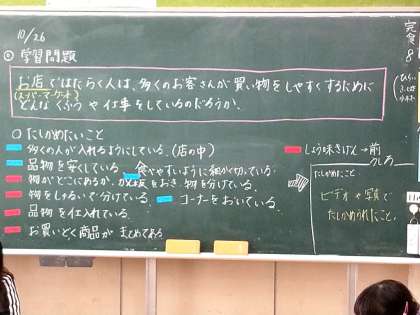 10/26
◎学習問題
お店ではたらく人は、多くのお客さんが買い物をしやすくするために
(スーパーマーケット)
どんなくふうや仕事をしているのだろうか。
○たしかめたいこと
多くの人が入れるようにしている。(店の中)
品物を安くしている 食べやすいように細かく切っている。
物がどこにあるか、かん板をおき、物を分けている。
物をしゅるいで分けている。 コーナーをおいている。
品物を仕入れている。
お買いどく商品が まとめてある
しょう味きげん→前
うしろ
たしかめたこと
ビデオや写真で
たしかめられたこと。
完食 8